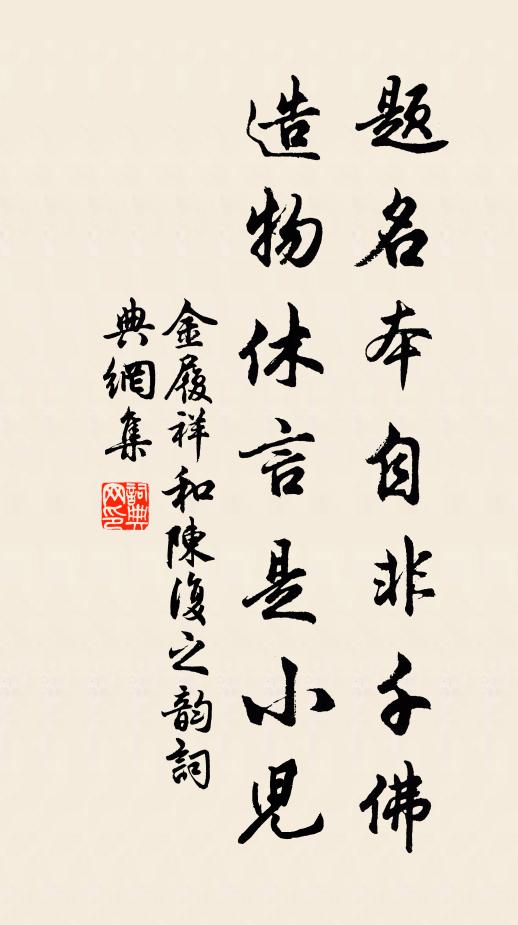 題名本自非千佛
造物休言是小児
金履祥和陳復之韵詞
典網集
詞典网印